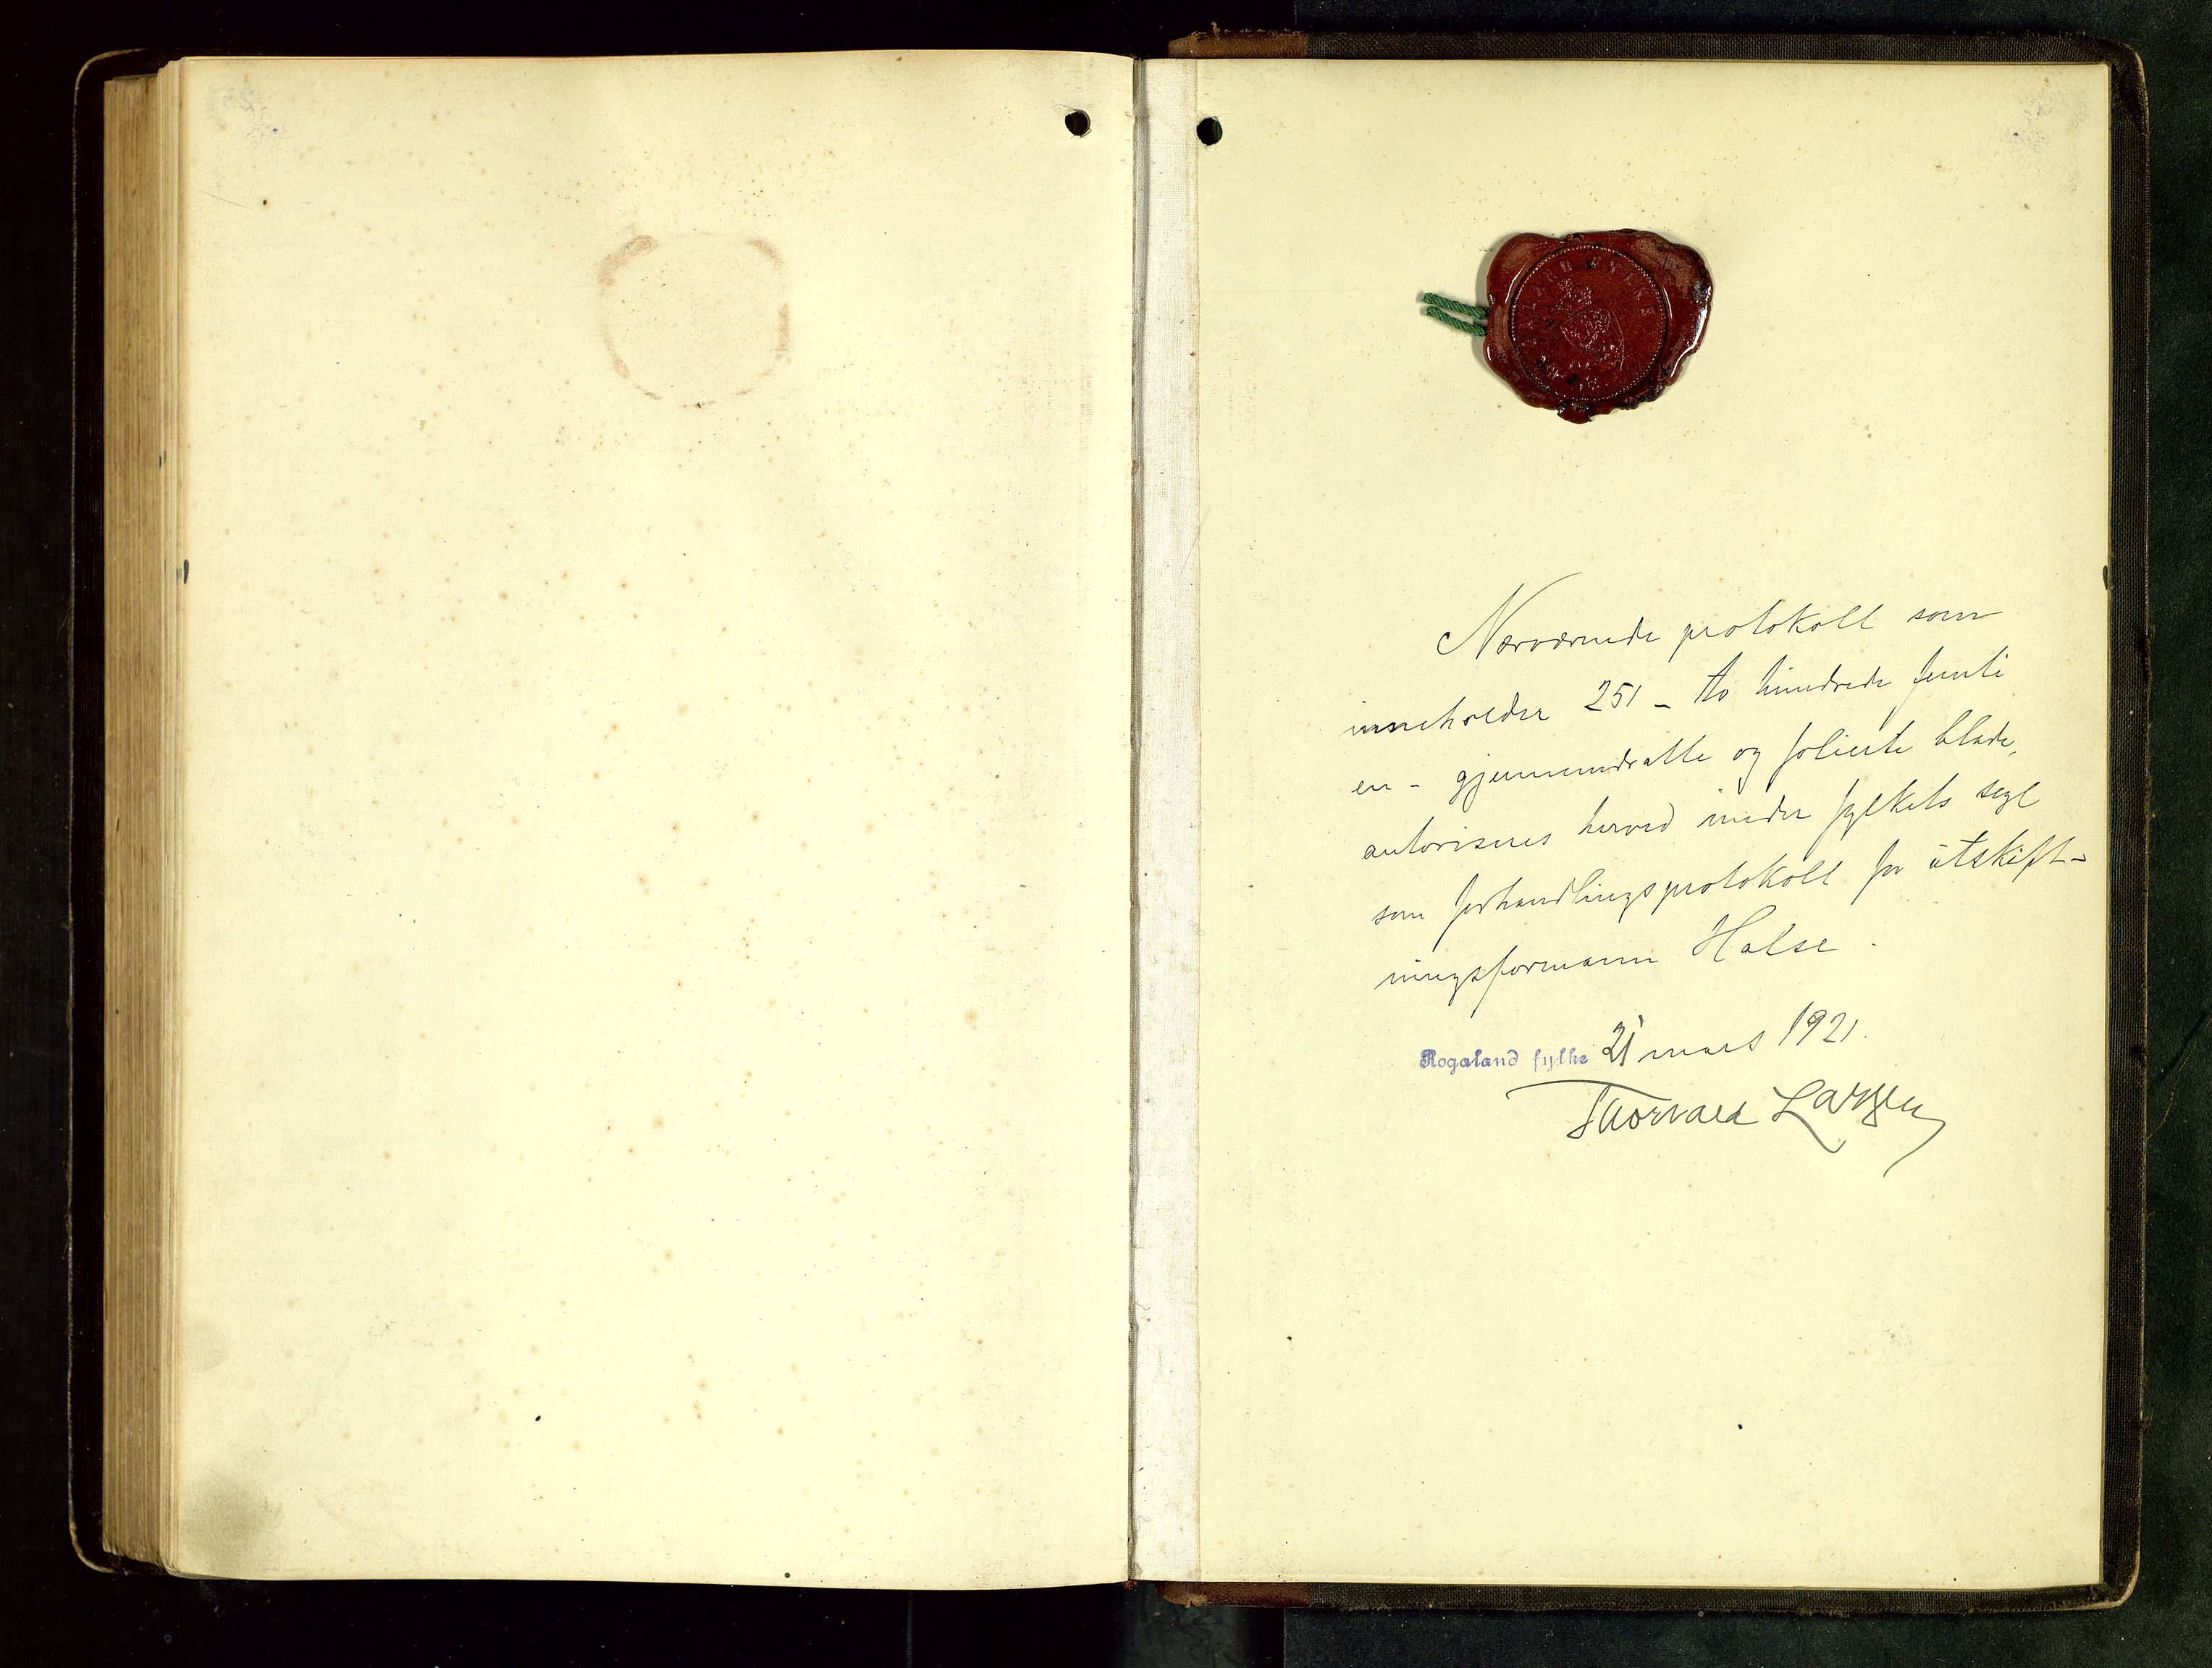 Nærværende protokoll som
inneholder 251 - to hundrede femti
en - gjennemdratte og folierte blade,
autoriseres herved under fylkets segl
som forhandlingsprotokoll for utskift-
ningsformann Halse.
Rogaland fylke 21 mars 1921.
Thorvald Larsen